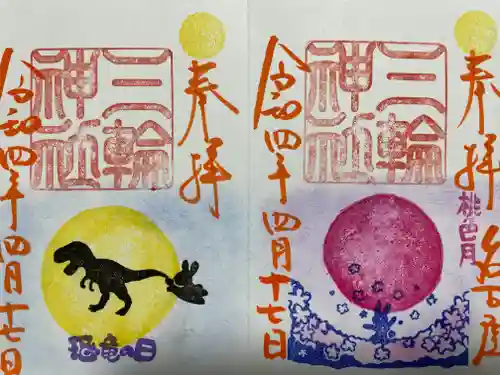 奉拝
三輪
神社
恐竜の日
令和四年四月十七日
奉拝
名古屋
桃色月
三輪
神社
令和四年四月十七日